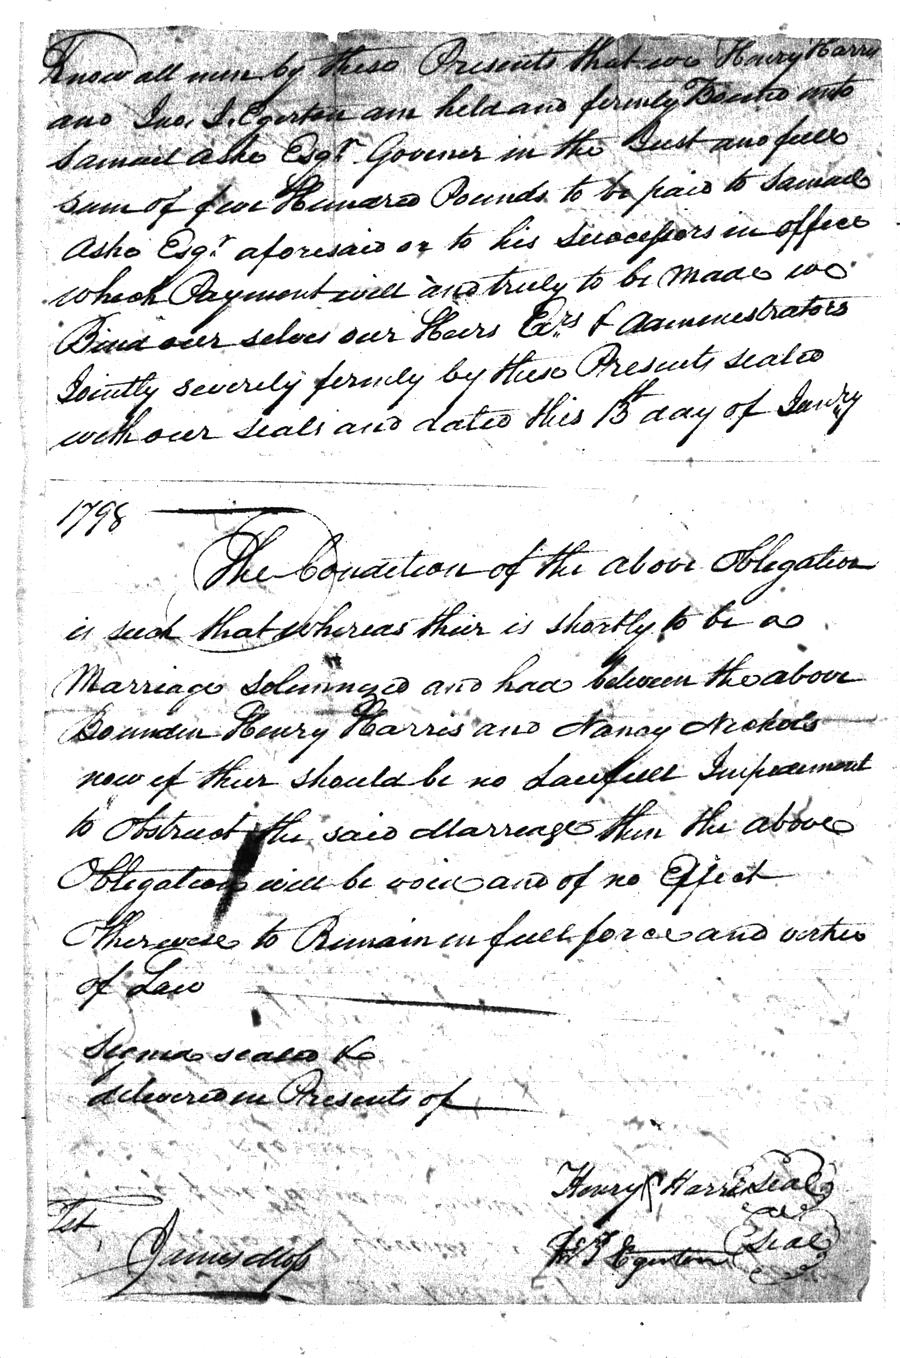 Know all men by these Presents that we Henry Harris
and Jno. J. Egerton am held and firmly Bound unto
Samuel Ashe Esqr. Govener in the Just and full
sum of five Hundred Pounds to be paid to Samuel
Ashe Esqr. aforesaid or to his Successors in office
which Payment will and truly to be made we
Bind our selves our Heirs Exrs & Administrators
Jointly severely firmly by these Presents sealed
with our seals and dated this 13th day of Janry
1798
The Condition of the above Obligation
is such that whereas their is shortly to be a
Marriage solemnezed and had between the above
Bounden Henry Harris and Nancy Nichols
now if their should be no Lawfull Impedement
to Obstruct the said Marreage then the above
Obligation will be void and of no Effect
Otherwise to Remain in full force and vertue
of Law
Signed sealed &
delivered in Presents of
Henry Harris Seal
Egerton Seal
Tst,
James Moss